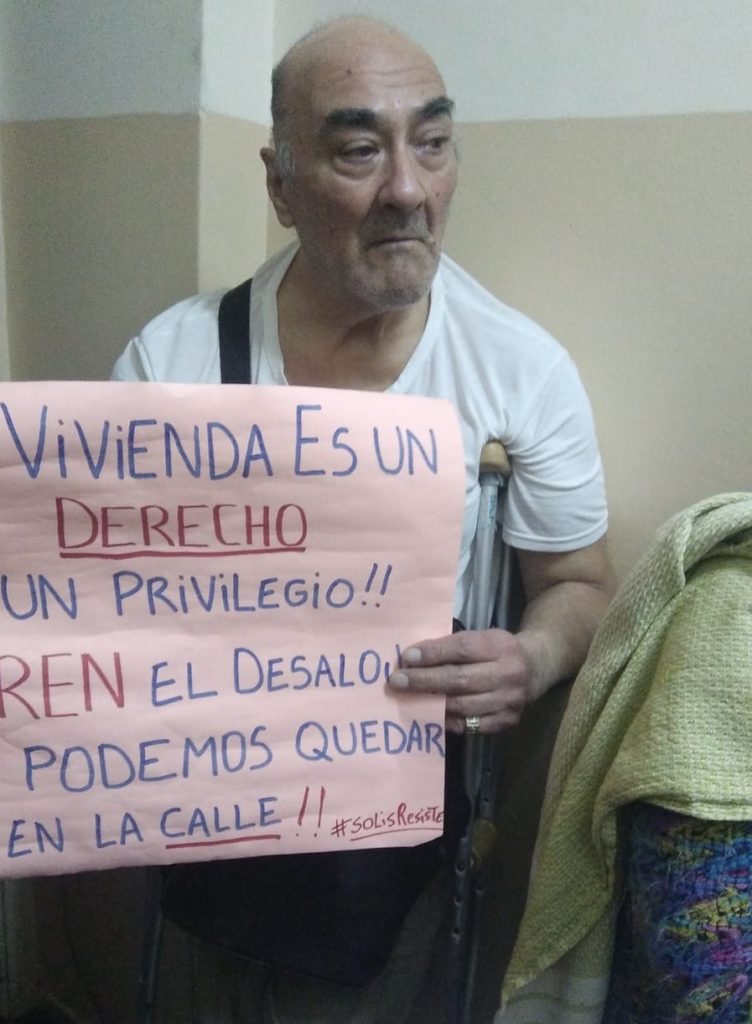 VIVIENDA ES UN
DERECHO
UN PRIVILEGIO!!
REN EL DESALOJ
PODEMOS QUEDAR
EN LA CALLE!!
#SOLISResiste